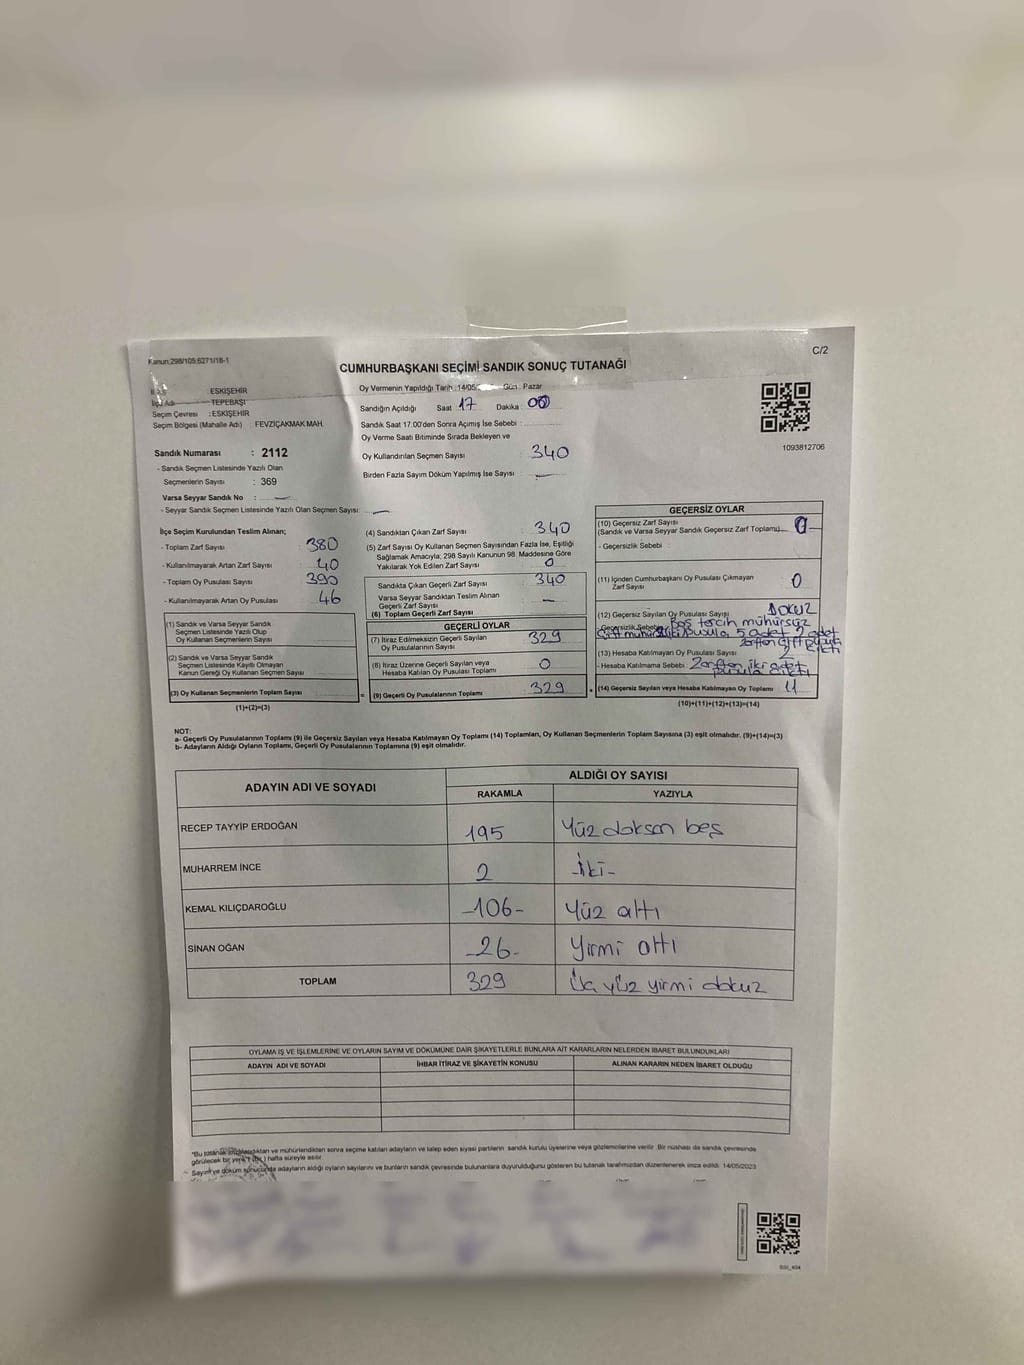 Kanun:298/105;6271/18-1
C/2
CUMHURBAŞKANI SEÇİMİ SANDIK SONUÇ TUTANAĞI
ESKİŞEHİR
TEPEBAŞI
Seçim Çevresi : ESKİŞEHİR
Seçim Bölgesi (Mahalle Adı) : FEVZİÇAKMAK MAH.
Oy Vermenin Yapıldığı Tarih :14/05 Gün : Pazar
Sandığın Açıldığı Saat 17 Dakika : 00
Sandık Saat 17.00'den Sonra Açımış İse Sebebi :
Oy Verme Saati Bitiminde Sırada Bekleyen ve
Oy Kullandırılan Seçmen Sayısı : 340
Birden Fazla Sayım Döküm Yapılmış İse Sayısı : —
1093812706
Sandık Numarası : 2112
- Sandık Seçmen Listesinde Yazılı Olan
Seçmenlerin Sayısı : 369
Varsa Seyyar Sandık No : —
- Seyyar Sandık Seçmen Listesinde Yazılı Olan Seçmen Sayısı: —
İlçe Seçim Kurulundan Teslim Alınan;
- Toplam Zarf Sayısı : 380
- Kullanılmayarak Artan Zarf Sayısı : 40
- Toplam Oy Pusulası Sayısı : 390
- Kullanılmayarak Artan Oy Pusulası : 46
(1) Sandık ve Varsa Seyyar Sandık
Seçmen Listesinde Yazılı Olup
Oy Kullanan Seçmenlerin Sayısı
(2) Sandık ve Varsa Seyyar Sandık
Seçmen Listesinde Kayıtlı Olmayan
Kanun Gereği Oy Kullanan Seçmen Sayısı
(3) Oy Kullanan Seçmenlerin Toplam Sayısı
(1)+(2)=(3)
(4) Sandıktan Çıkan Zarf Sayısı : 340
(5) Zarf Sayısı Oy Kullanan Seçmen Sayısından Fazla İse, Eşitliği
Sağlamak Amacıyla; 298 Sayılı Kanunun 98. Maddesine Göre
Yakılarak Yok Edilen Zarf Sayısı : 0
Sandıkta Çıkan Geçerli Zarf Sayısı : 340
Varsa Seyyar Sandıktan Teslim Alınan
Geçerli Zarf Sayısı : —
(6) Toplam Geçerli Zarf Sayısı
GEÇERLİ OYLAR
(7) İtiraz Edilmeksizin Geçerli Sayılan
Oy Pusulalarının Sayısı : 329
(8) İtiraz Üzerine Geçerli Sayılan veya
Hesaba Katılan Oy Pusulası Toplamı : 0
(9) Geçerli Oy Pusulalarının Toplamı : 329
GEÇERSİZ OYLAR
(10) Geçersiz Zarf Sayısı
(Sandık ve Varsa Seyyar Sandık Geçersiz Zarf Toplamı) 0
- Geçersizlik Sebebi :
(11) İçinden Cumhurbaşkanı Oy Pusulası Çıkmayan
Zarf Sayısı : 0
(12) Geçersiz Sayılan Oy Pusulası Sayısı : Dokuz
- Geçersizlik Sebebi: Boş tercih mühürsüz
pusula 5 adet 2 adet
(13) Hesaba Katılmayan Oy Pusulası Sayısı : 2
- Hesaba Katılmama Sebebi : Zarftan iki adet
pusula çıktı
(14) Geçersiz Sayılan veya Hesaba Katılmayan Oy Toplamı : 11
(10)+(11)+(12)+(13)=(14)
NOT:
a- Geçerli Oy Pusulalarının Toplamı (9) ile Geçersiz Sayılan veya Hesaba Katılmayan Oy Toplamı (14) Toplamları, Oy Kullanan Seçmenlerin Toplam Sayısına (3) eşit olmalıdır. (9)+(14)=(3)
b- Adayların Aldığı Oyların Toplamı, Geçerli Oy Pusulalarının Toplamına (9) eşit olmalıdır.
ADAYIN ADI VE SOYADI
ALDIĞI OY SAYISI
RAKAMLA YAZIYLA
RECEP TAYYİP ERDOĞAN 195 Yüz doksan beş
MUHARREM İNCE 2 -İki-
KEMAL KILIÇDAROĞLU -106- Yüz altı
SİNAN OĞAN -26- Yirmi altı
TOPLAM 329 Üç yüz yirmi dokuz
OYLAMA İŞ VE İŞLEMLERİNE VE OYLARIN SAYIM VE DÖKÜMÜNE DAİR ŞİKAYETLERLE BUNLARA AİT KARARLARIN NELERDEN İBARET BULUNDUKLARI
ADAYIN ADI VE SOYADI İHBAR İTİRAZ VE ŞİKAYETİN KONUSU ALINAN KARARIN NEDEN İBARET OLDUĞU
*Bu tutanak imzalandıktan ve mühürlendikten sonra seçime katılan adayların ve talep eden siyasi partilerin sandık kurulu üyelerine veya gözlemcilerine verilir. Bir nüshası da sandık çevresinde
görülecek bir yere 1 (bir) hafta süreyle asılır.
Sayım ve döküm sonucunda adayların aldığı oyların sayılarını ve bunların sandık çevresinde bulunanlara duyurulduğunu gösteren bu tutanak tarafımızdan düzenlenerek imza edildi. 14/05/2023